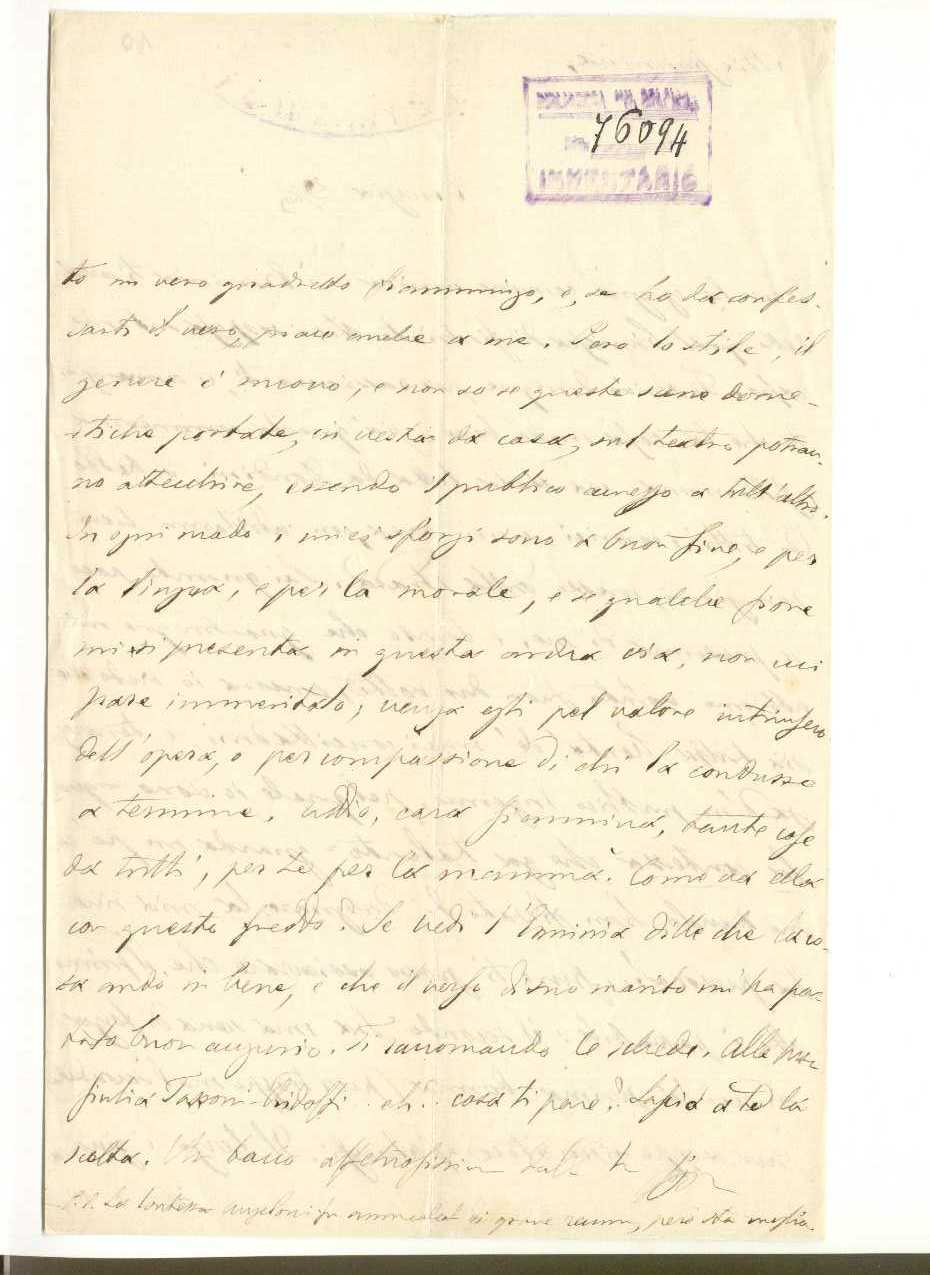 76094
INVENTARIO
to un vero quadretto fiammingo, e, se ho da confes-
sarti il vero, piace anche a me. Però lo stile, il
genere è nuovo, e non so se queste scene dome-
stiche portate, in veste da casa, sul teatro potran-
no attecchire, essendo il pubblico avvezzo a tutt'altro.
In ogni modo, i miei sforzi sono a buon fine, e per
la lingua, e per la morale, e se qualche fiore
mi si presenta in questa ardua via, non mi
pare immeritato, venga egli pel valore intrinseco
dell'opera, o per compassione di chi la condusse
a termine. Addio, cara Giannina, tante cose
da tutti, per te per la mamma. Come va ella
con questo freddo? Se vedi l'Erminia dille che la co-
sa andò in bene, e che il verso di suo marito mi ha por-
tato buon augurio. Ti raccomando le schede. Alla
Giulia Tassoni eh? cosa ti pare? Lascio a te la
scelta. Un bacio affettuosissimo dalla tu
P.S. La Contessa Angeloni fu ammalata di però sta meglio.